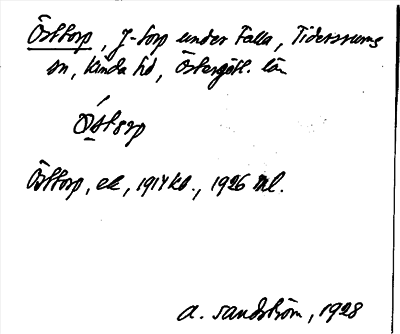 Östtorp, J-torp under Falla, Tidersrums
sn, Kinda hd, Östergötl. län
Östtorp, ek, 1914 kb., 1926 ml.
A. Sandström, 1928